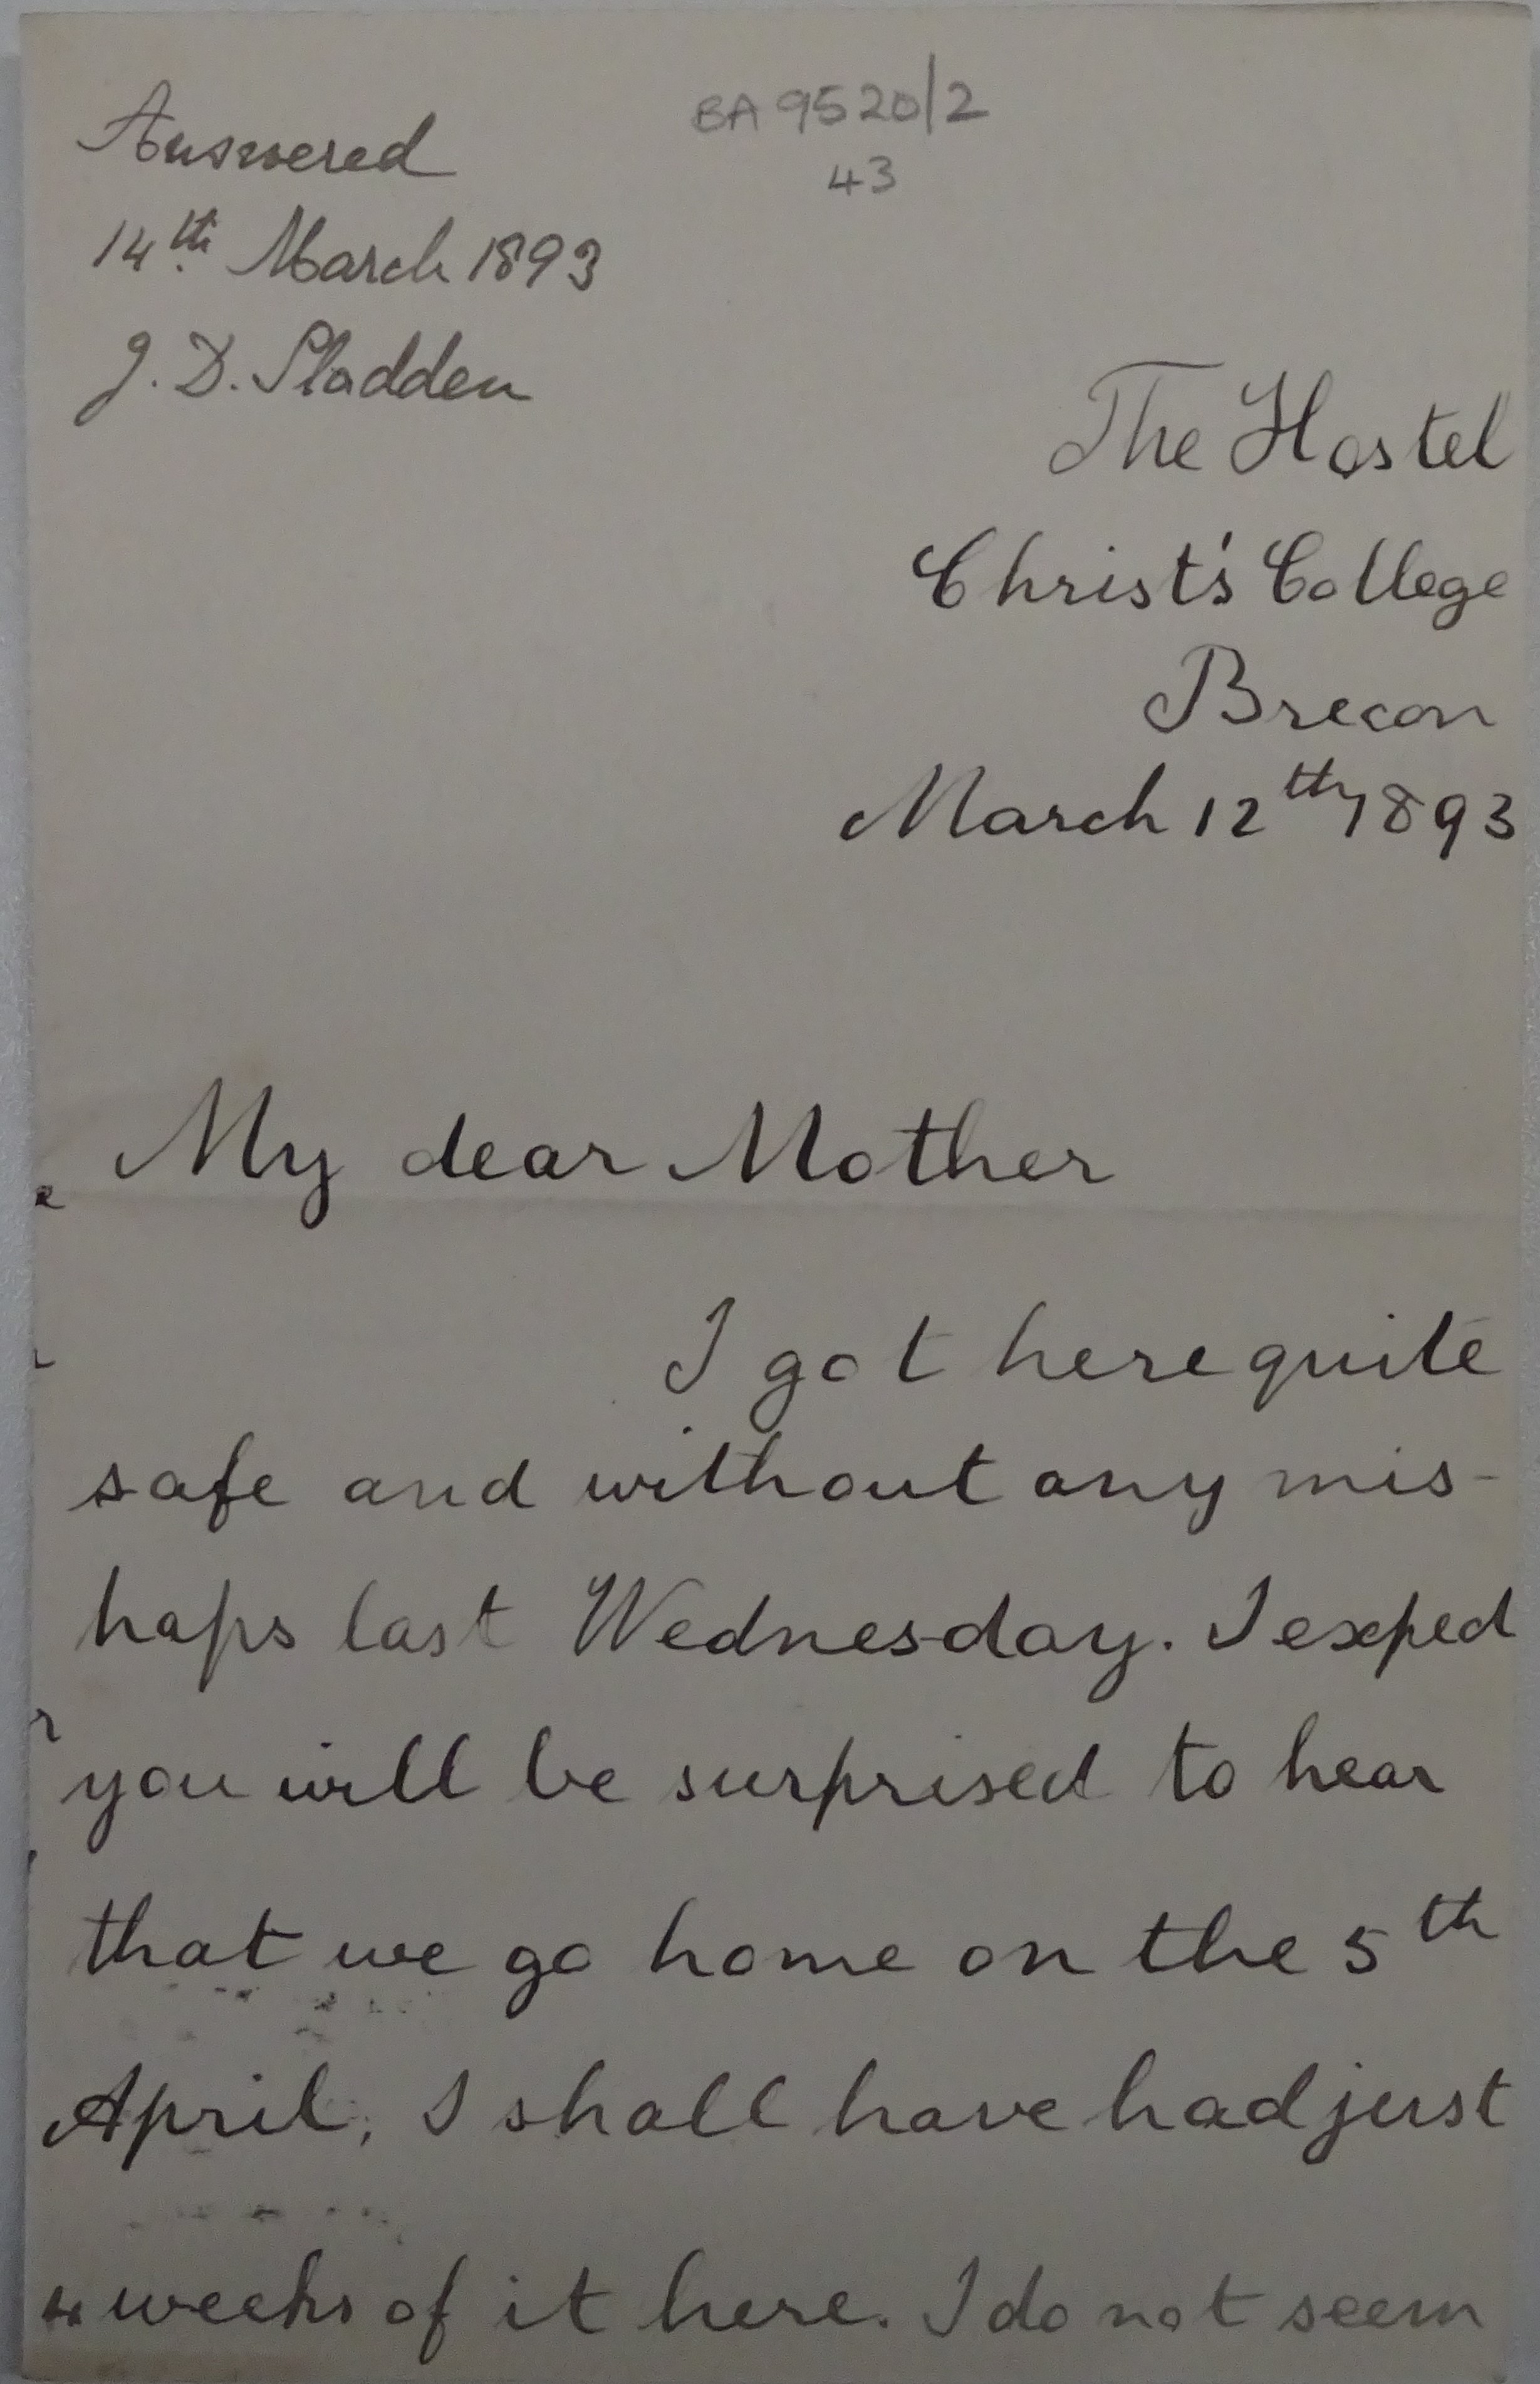 BA 9520/2
43
Answered
14th March 1893
J. D. Sladden
The Hostel
Christ's College
Brecon
March 12th 1893
My dear Mother
I got here quite
safe and without any mis-
haps last Wednesday. I exped
you will be surprised to hear
that we go home on the 5th
April, I shall have had just
4 weeks of it here. I do not seem